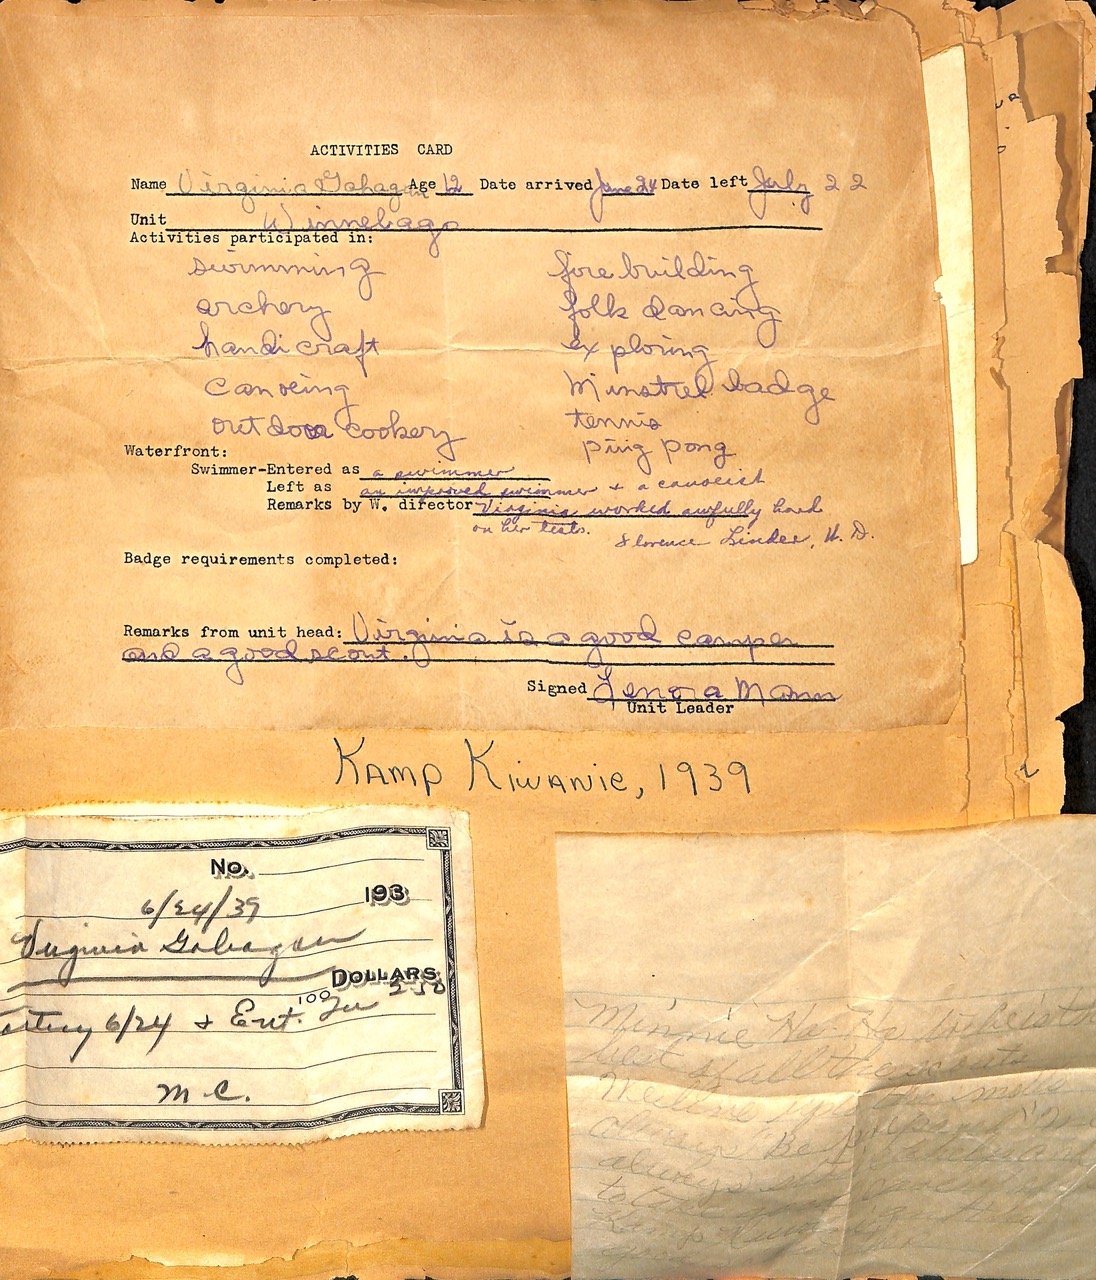 ACTIVITIES CARD
Name Virginia Gahagan Age 12 Date arrived June 24 Date left July 22
Unit Winnebago
Activities participated in:
swimming fire building
archery folk dancing
handicraft exploring
canoeing Minstrel badge
outdoor cookery tennis
ping pong
Waterfront:
Swimmer-Entered as a swimmer
Left as an improved swimmer + a canoeist
Remarks by W. director Virginia worked awfully hard
on her tests.
Florence Linder, W. D.
Badge requirements completed:
Remarks from unit head: Virginia is a good camper
and a good scout.
Signed Lenora Mann
Unit Leader
KAMP KIWANIE, 1939
No.
193
6/24/39
Virginia Gahagan
DOLLARS
100 2 50
6/24 + Ent. Fee
M C.
Minnie Ha-Ha
best of all the scouts
always
always
to the
Kamp